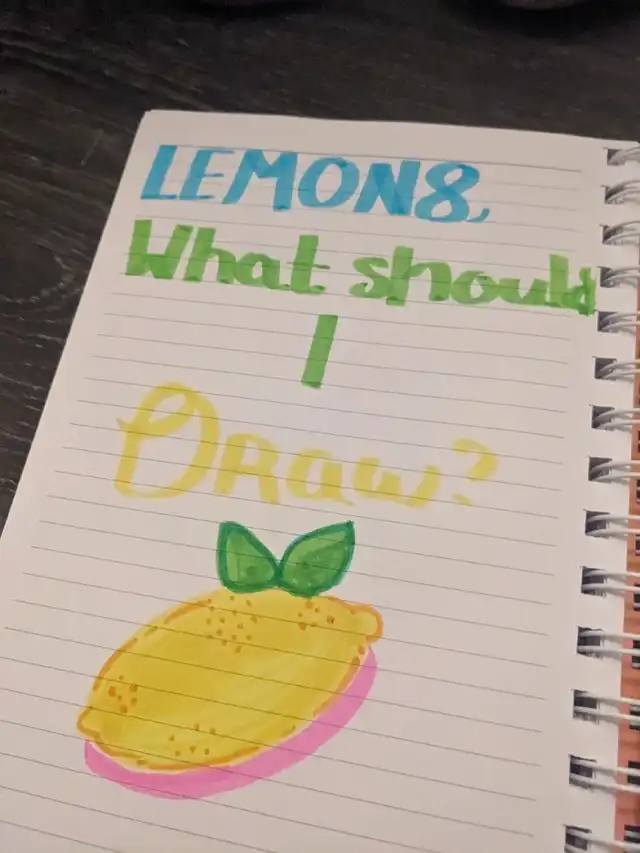 LEMON8,
What should
I
Draw?